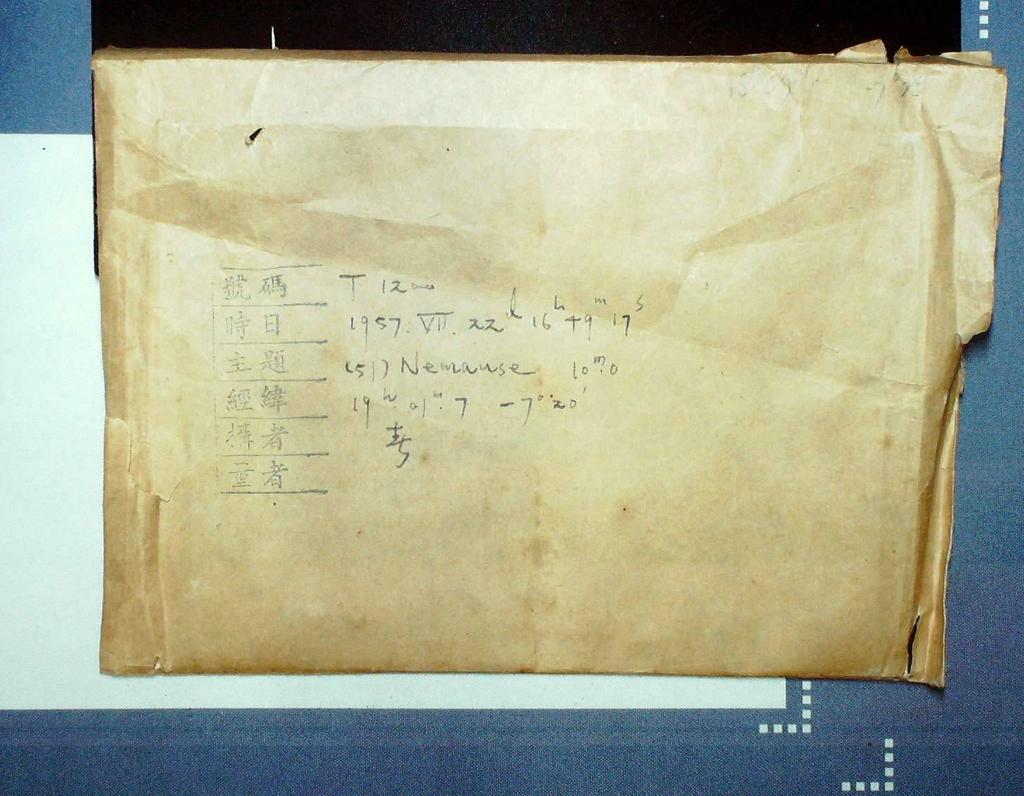 號碼 T 1200
時日 1957. VII. 22d 16h 49m 17s
主題 (51) Nemause 10m.0
經緯 19h 01m.7 -7°20'
攝者
量者